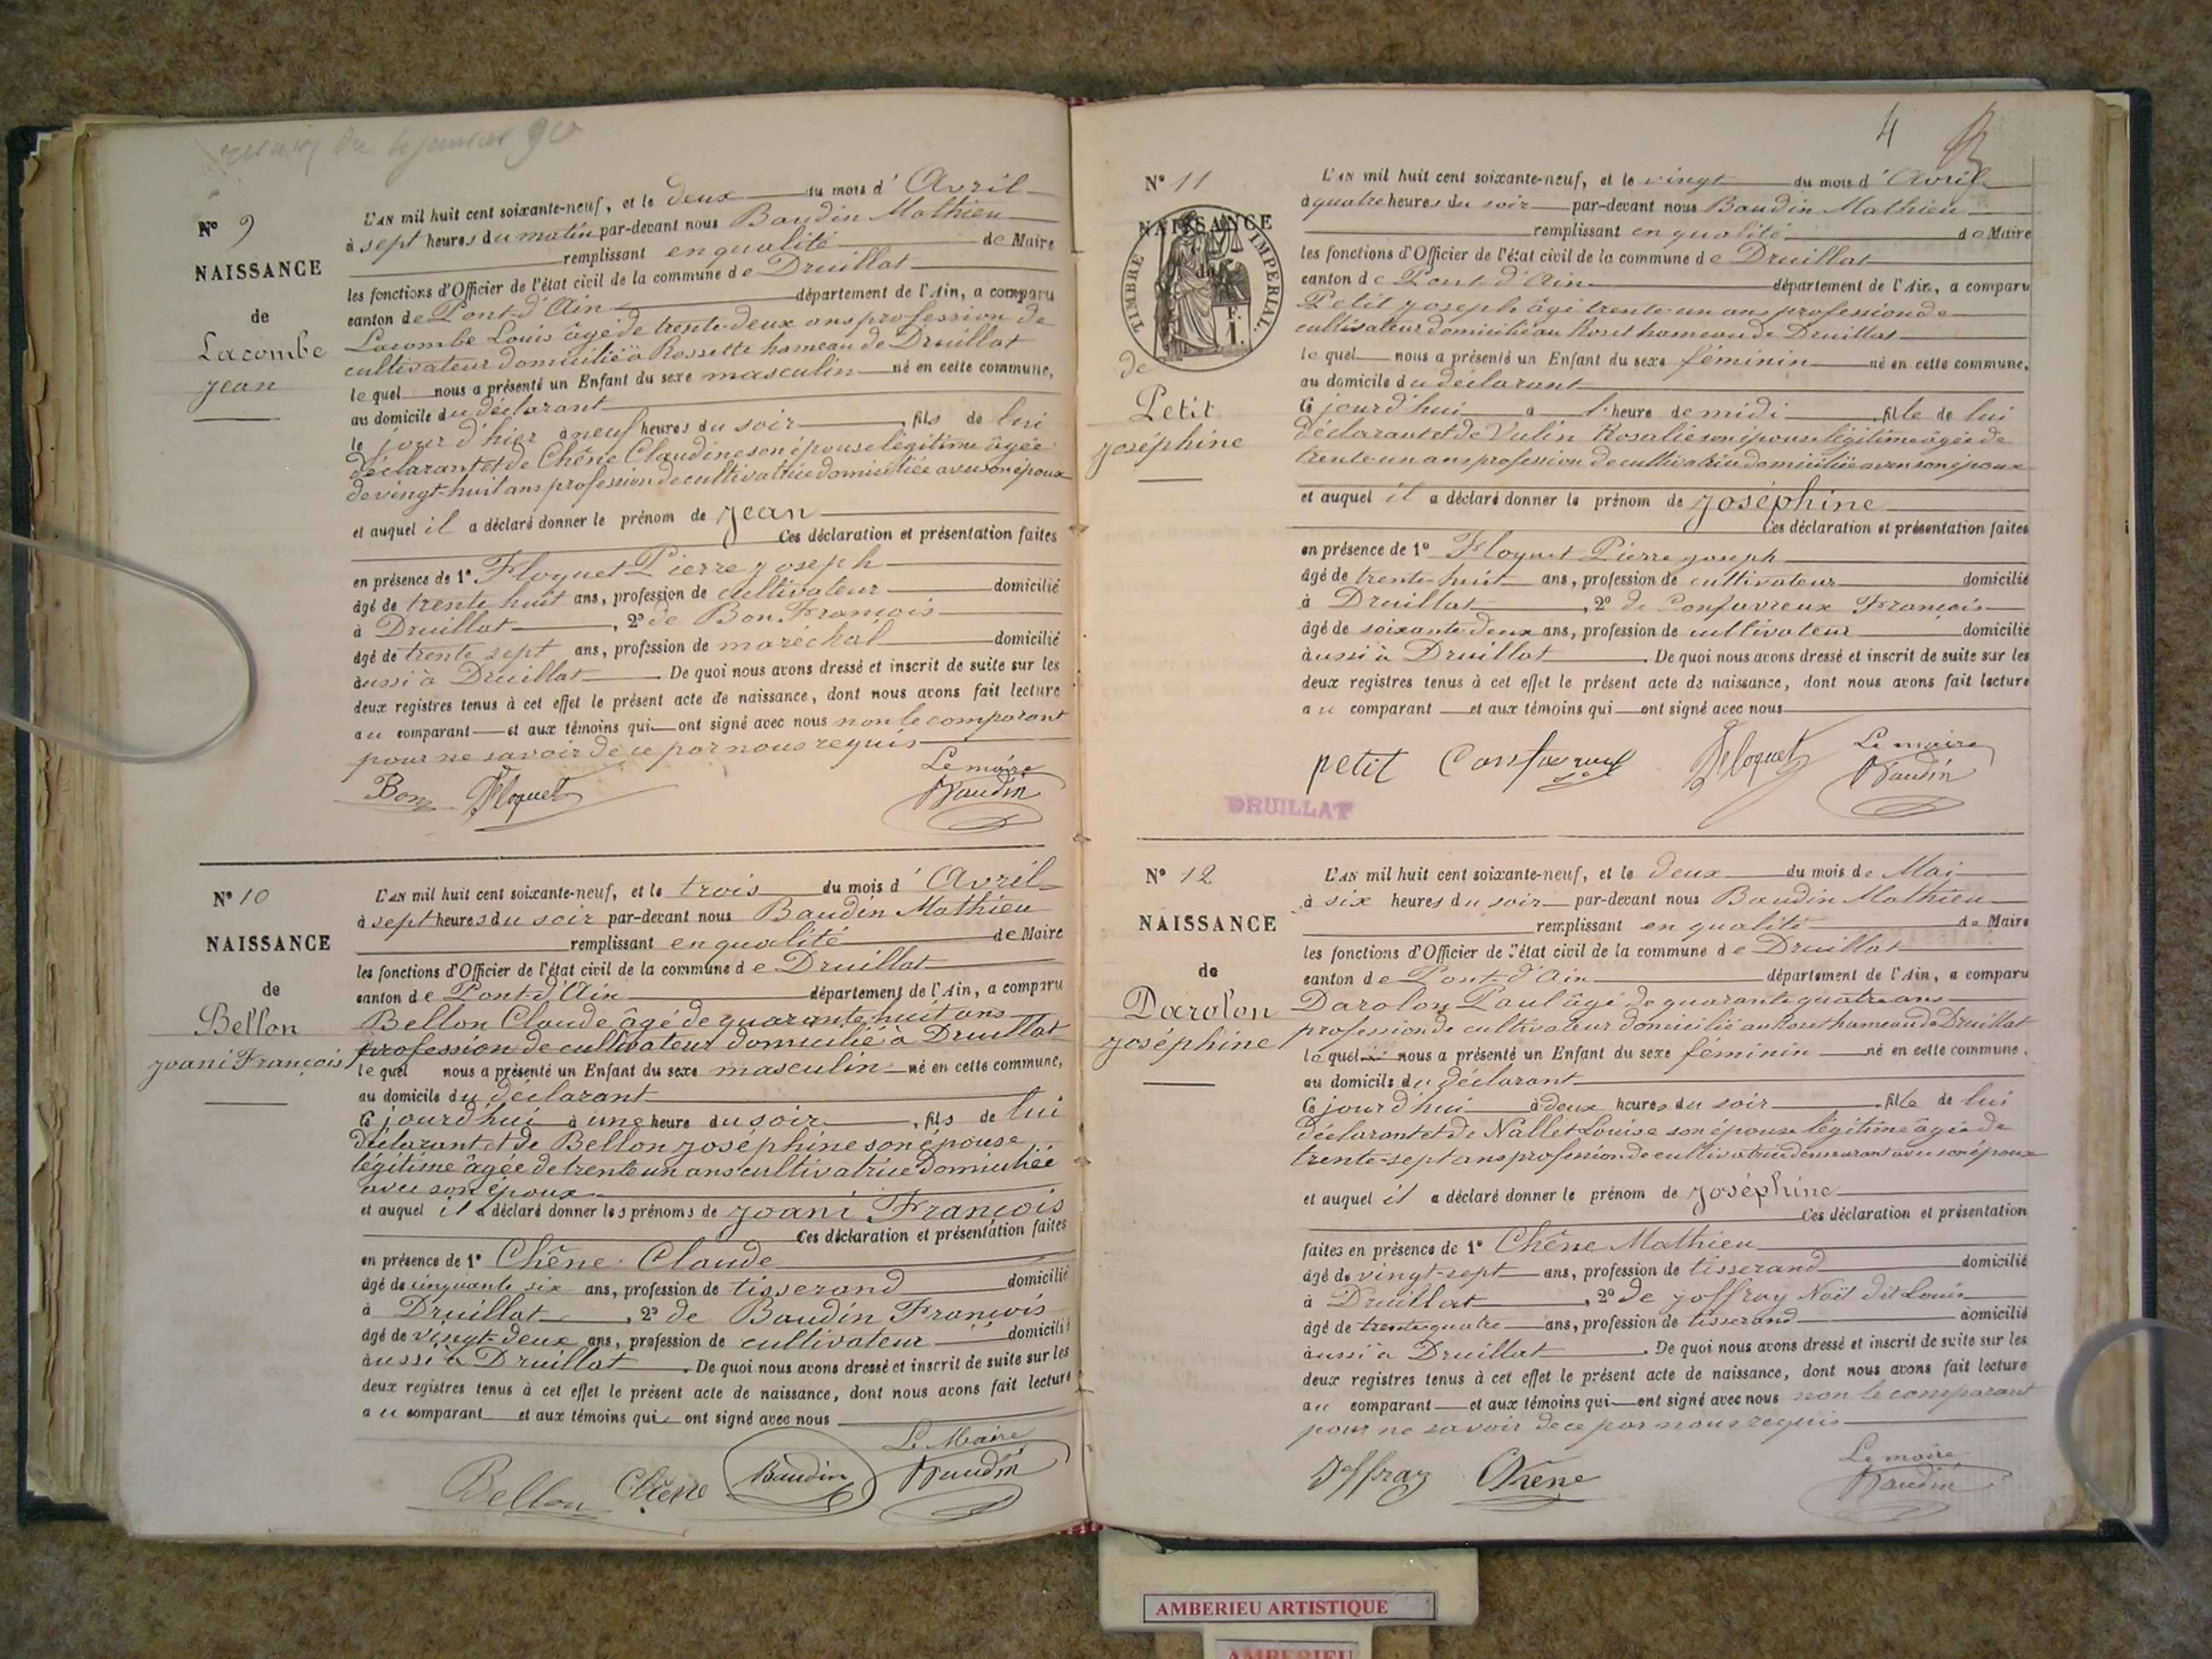 N° 9
NAISSANCE
de
Lacombe
Jean
L'AN mil huit cent soixante-neuf, et le deux du mois d'Avril
à sept heures du matin par-devant nous Baudin Mathieu
remplissant en qualité de Maire
les fonctions d'Officier de l'état civil de la commune de Druillat
canton de Pont-d'Ain département de l'Ain, a comparu
Lacombe Louis âgé de trente-deux ans profession de
cultivateur domicilié à Rossette hameau de Druillat
lequel nous a présenté un Enfant du sexe masculin né en cette commune,
au domicile du déclarant
le jour d'hier à neuf heures du soir, fils de lui
déclarant et de Chêne Claudine son épouse légitime âgée
de vingt-huit ans profession de cultivatrice domiciliée avec son époux
et auquel il a déclaré donner le prénom de Jean
Ces déclaration et présentation faites
en présence de 1° Floquet Pierre Joseph
âgé de trente huit ans, profession de cultivateur domicilié
à Druillat, 2° de Bon François
âgé de trente sept ans, profession de maréchal domicilié
aussi à Druillat. De quoi nous avons dressé et inscrit de suite sur les
deux registres tenus à cet effet le présent acte de naissance, dont nous avons fait lecture
au comparant et aux témoins qui ont signé avec nous non le comparant
pour ne savoir de ce par nous requis
Le maire
Bon Floquet Baudin
N° 10
NAISSANCE
de
Bellon
Joani François
L'AN mil huit cent soixante-neuf, et le trois du mois d'Avril
à sept heures du soir par-devant nous Baudin Mathieu
remplissant en qualité de Maire
les fonctions d'Officier de l'état civil de la commune de Druillat
canton de Pont-d'Ain département de l'Ain, a comparu
Bellon Claude âgé de quarante huit ans
profession de cultivateur domicilié à Druillat
lequel nous a présenté un Enfant du sexe masculin né en cette commune,
au domicile du déclarant
Ce jourd'hui à une heure du soir, fils de lui
déclarant et de Bellon Joséphine son épouse
légitime âgée de trente un ans cultivatrice domiciliée
avec son époux
et auquel il a déclaré donner les prénoms de Joani François
Ces déclaration et présentation faites
en présence de 1° Chêne Claude
âgé de cinquante six ans, profession de tisserand domicilié
à Druillat, 2° de Baudin François
âgé de vingt-deux ans, profession de cultivateur domicilié
aussi à Druillat. De quoi nous avons dressé et inscrit de suite sur les
deux registres tenus à cet effet le présent acte de naissance, dont nous avons fait lecture
au comparant et aux témoins qui ont signé avec nous
Le Maire
Bellon Chêne Baudin Baudin
4
N° 11
NAISSANCE
TIMBRE IMPERIAL.
de
Petit
Joséphine
L'AN mil huit cent soixante-neuf, et le vingt du mois d'Avril
à quatre heures du soir par-devant nous Baudin Mathieu
remplissant en qualité de Maire
les fonctions d'Officier de l'état civil de la commune de Druillat
canton de Pont-d'Ain département de l'Ain, a comparu
Petit Joseph âgé trente-un ans profession de
cultivateur domicilié au Roset hameau de Druillat
lequel nous a présenté un Enfant du sexe féminin né en cette commune,
au domicile du déclarant
Ce jourd'hui à l'heure de midi, fille de lui
déclarant et de Vulin Rosalie son épouse légitime âgée de
trente-un ans profession de cultivatrice domiciliée avec son époux
et auquel il a déclaré donner le prénom de Joséphine
Ces déclaration et présentation faites
en présence de 1° Floquet Pierre Joseph
âgé de trente-huit ans, profession de cultivateur domicilié
à Druillat, 2° de Confavreux François
âgé de soixante-deux ans, profession de cultivateur domicilié
aussi à Druillat. De quoi nous avons dressé et inscrit de suite sur les
deux registres tenus à cet effet le présent acte de naissance, dont nous avons fait lecture
au comparant et aux témoins qui ont signé avec nous
Le maire
petit Confavreux Floquet Baudin
DRUILLAT
N° 12
NAISSANCE
de
Darolon
Joséphine
L'AN mil huit cent soixante-neuf, et le deux du mois de Mai
à six heures du soir par-devant nous Baudin Mathieu
remplissant en qualité de Maire
les fonctions d'Officier de l'état civil de la commune de Druillat
canton de Pont-d'Ain département de l'Ain, a comparu
Darolon Paul âgé de quarante quatre ans
profession de cultivateur domicilié au Roset hameau de Druillat
lequel nous a présenté un Enfant du sexe féminin né en cette commune,
au domicile du déclarant
Ce jourd'hui à deux heures du soir, fille de lui
déclarant et de Nallet Louise son épouse légitime âgée de
trente-sept ans profession de cultivatrice demeurant avec son époux
et auquel il a déclaré donner le prénom de Joséphine
Ces déclaration et présentation
faites en présence de 1° Chêne Mathieu
âgé de vingt-sept ans, profession de tisserand domicilié
à Druillat, 2° de Joffray Noël dit Louis
âgé de trente quatre ans, profession de tisserand domicilié
aussi à Druillat. De quoi nous avons dressé et inscrit de suite sur les
deux registres tenus à cet effet le présent acte de naissance, dont nous avons fait lecture
au comparant et aux témoins qui ont signé avec nous non le comparant
pour ne savoir de ce par nous requis
Le maire
Joffray Chêne Baudin
AMBERIEU ARTISTIQUE
AMBERIEU